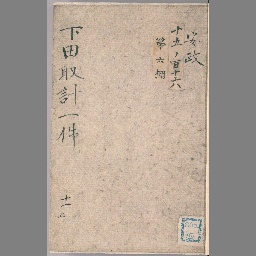 安政
十五ノ百十六
第六期
下田取計一件
十一